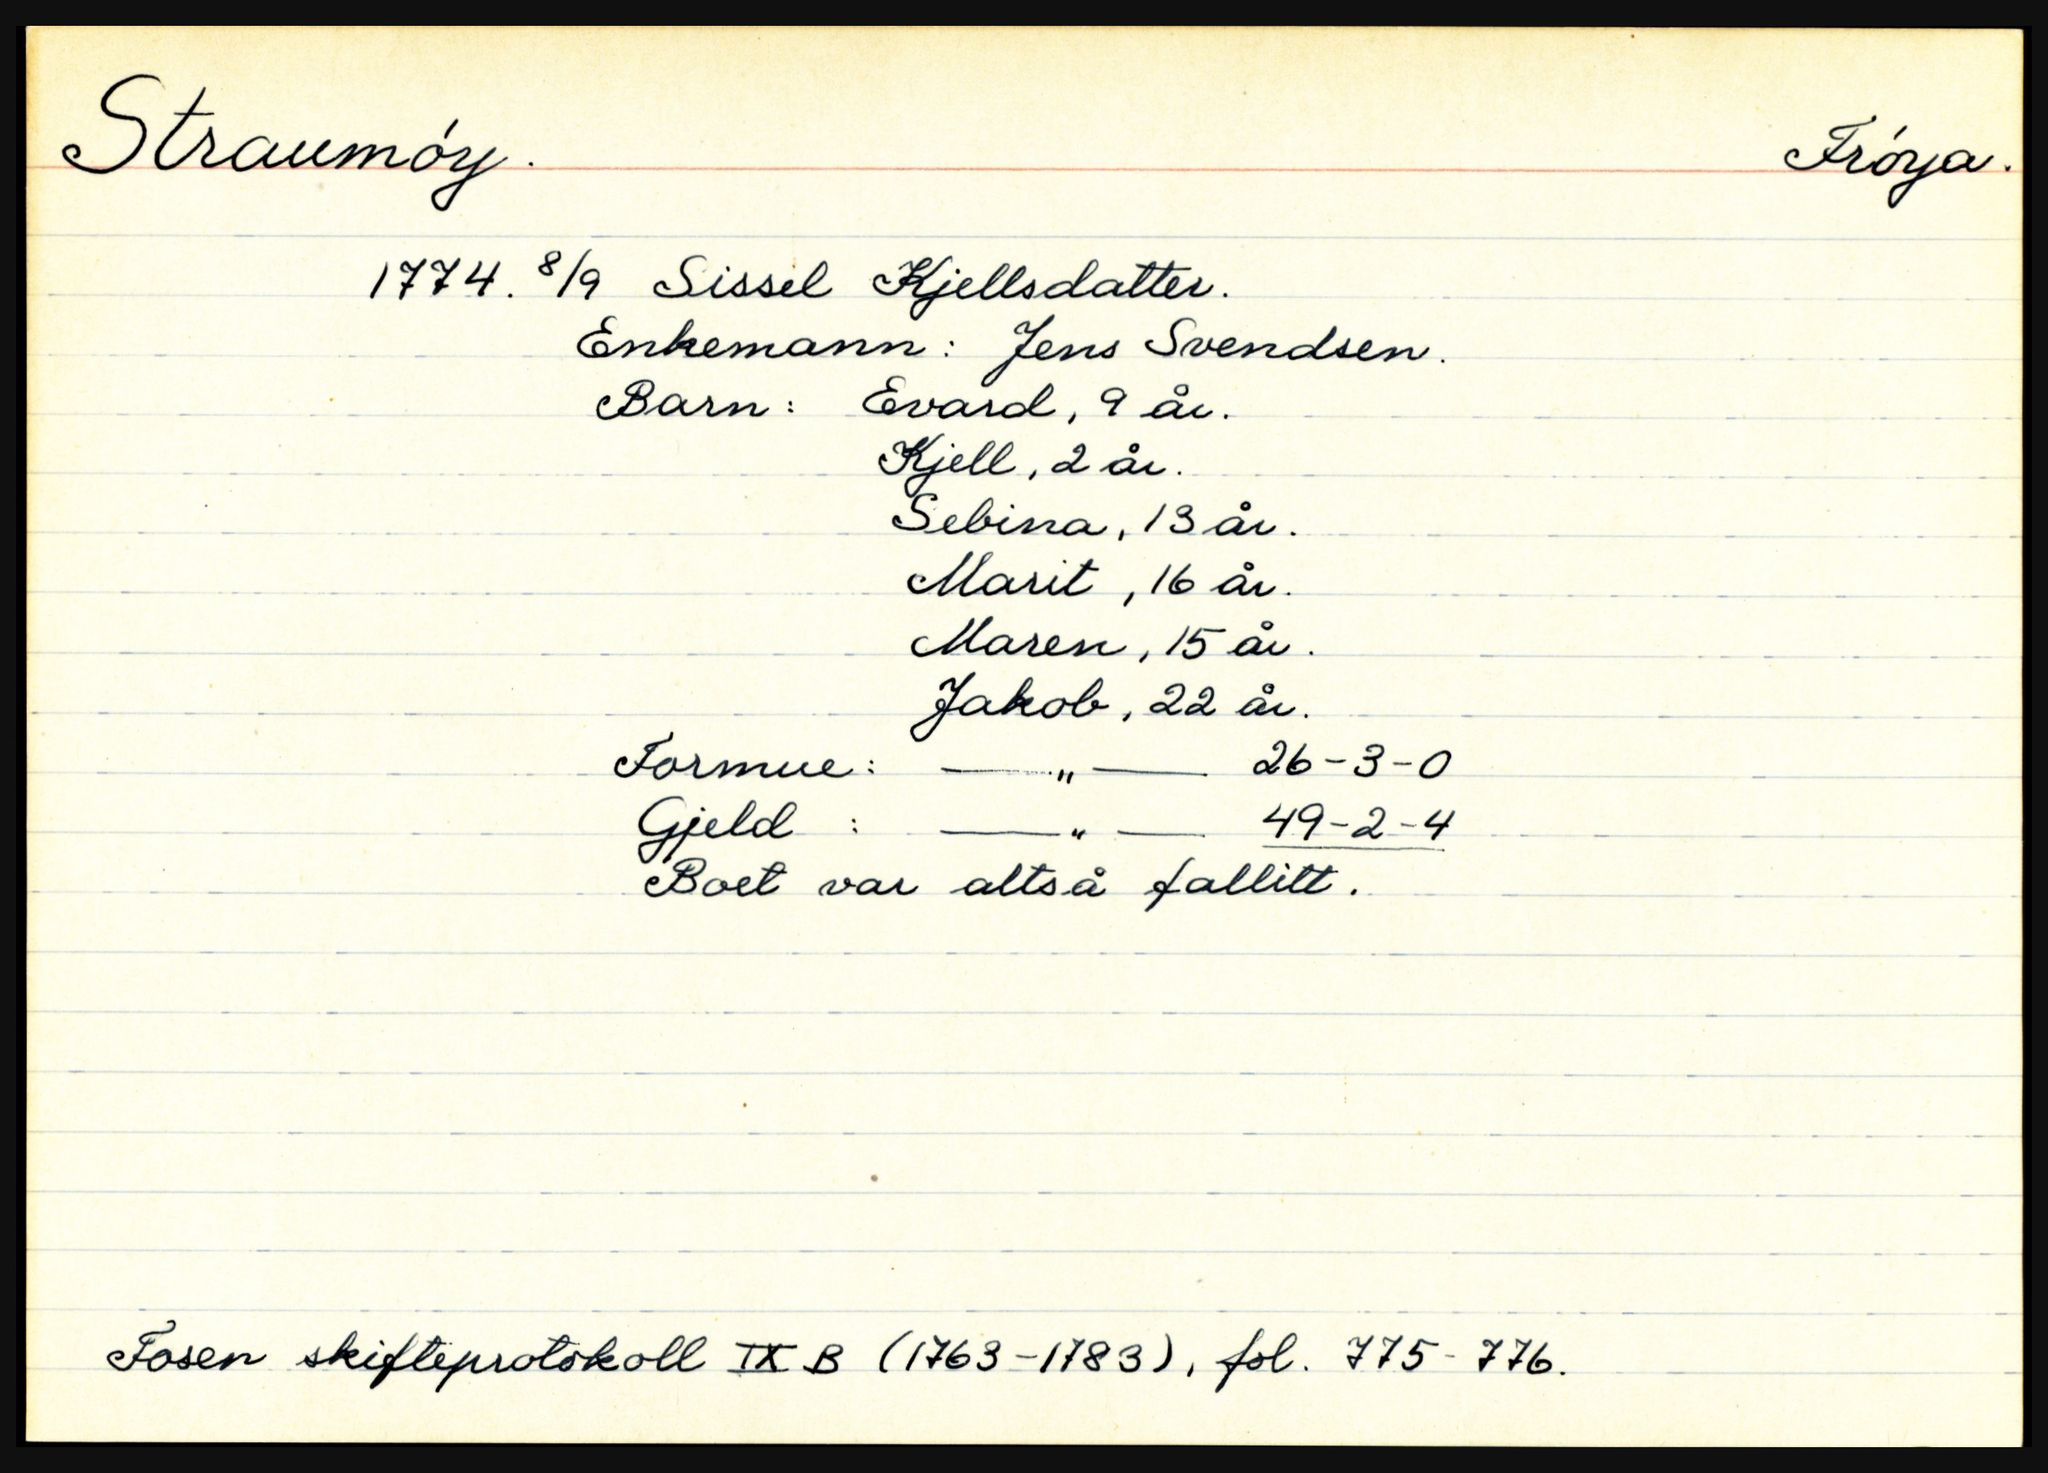 Straumóy. Fróya.
1774. 8/9 Sissel Kjellsdatter.
Enkemann: Jens Svendsen.
Barn: Evard, 9 år.
Kjell, 2 år.
Sebina, 13 år.
Marit, 16 år.
Maren, 15 år.
Jakob, 22 år.
Formue: —„— 26-3-0
Gjeld : —„— 49-2-4
Boet var altså fallitt.
Fosen skifteprotokoll IX B (1763-1783), fol. 775-776.